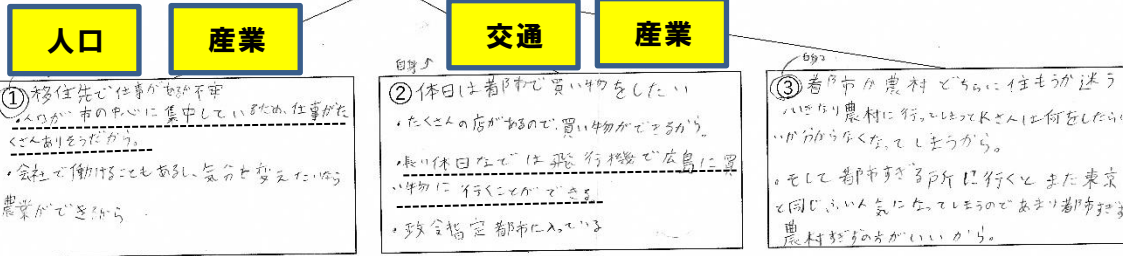 人口
産業
交通
産業
① 移住先で仕事があるか不安
・人口が市の中心に集中しているため、仕事がた
くさんありそうだから。
・会社で働けることもあるし、気分を変えたいなら
農業ができるから
② 休日は都市で買い物をしたい
・たくさんの店があるので、買い物ができるから。
・長い休日などでは飛行機で広島に買
い物に行くことができる
・政令指定都市に入っている
③ 都市か農村どちらに住もうか迷う
いきなり農村に行ってしまってKさんは何をしたらい
いか分からなくなってしまうから。
・そして都市すぎる所に行くとまた東京
と同じふんい気になってしまうのであまり都市すぎず
農村すぎずの方がいいから。